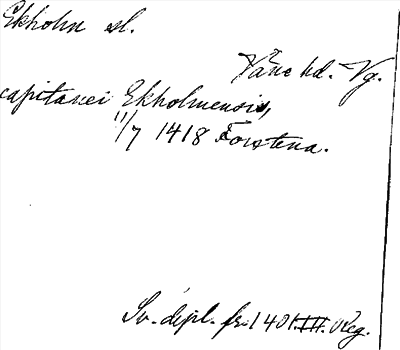 Ekholm sl.
Väne hd. Vg.
capitanei Ekholmensis,
11/7 1418 Forstena.
Sv. dipl. fr. 1401. III. Reg.